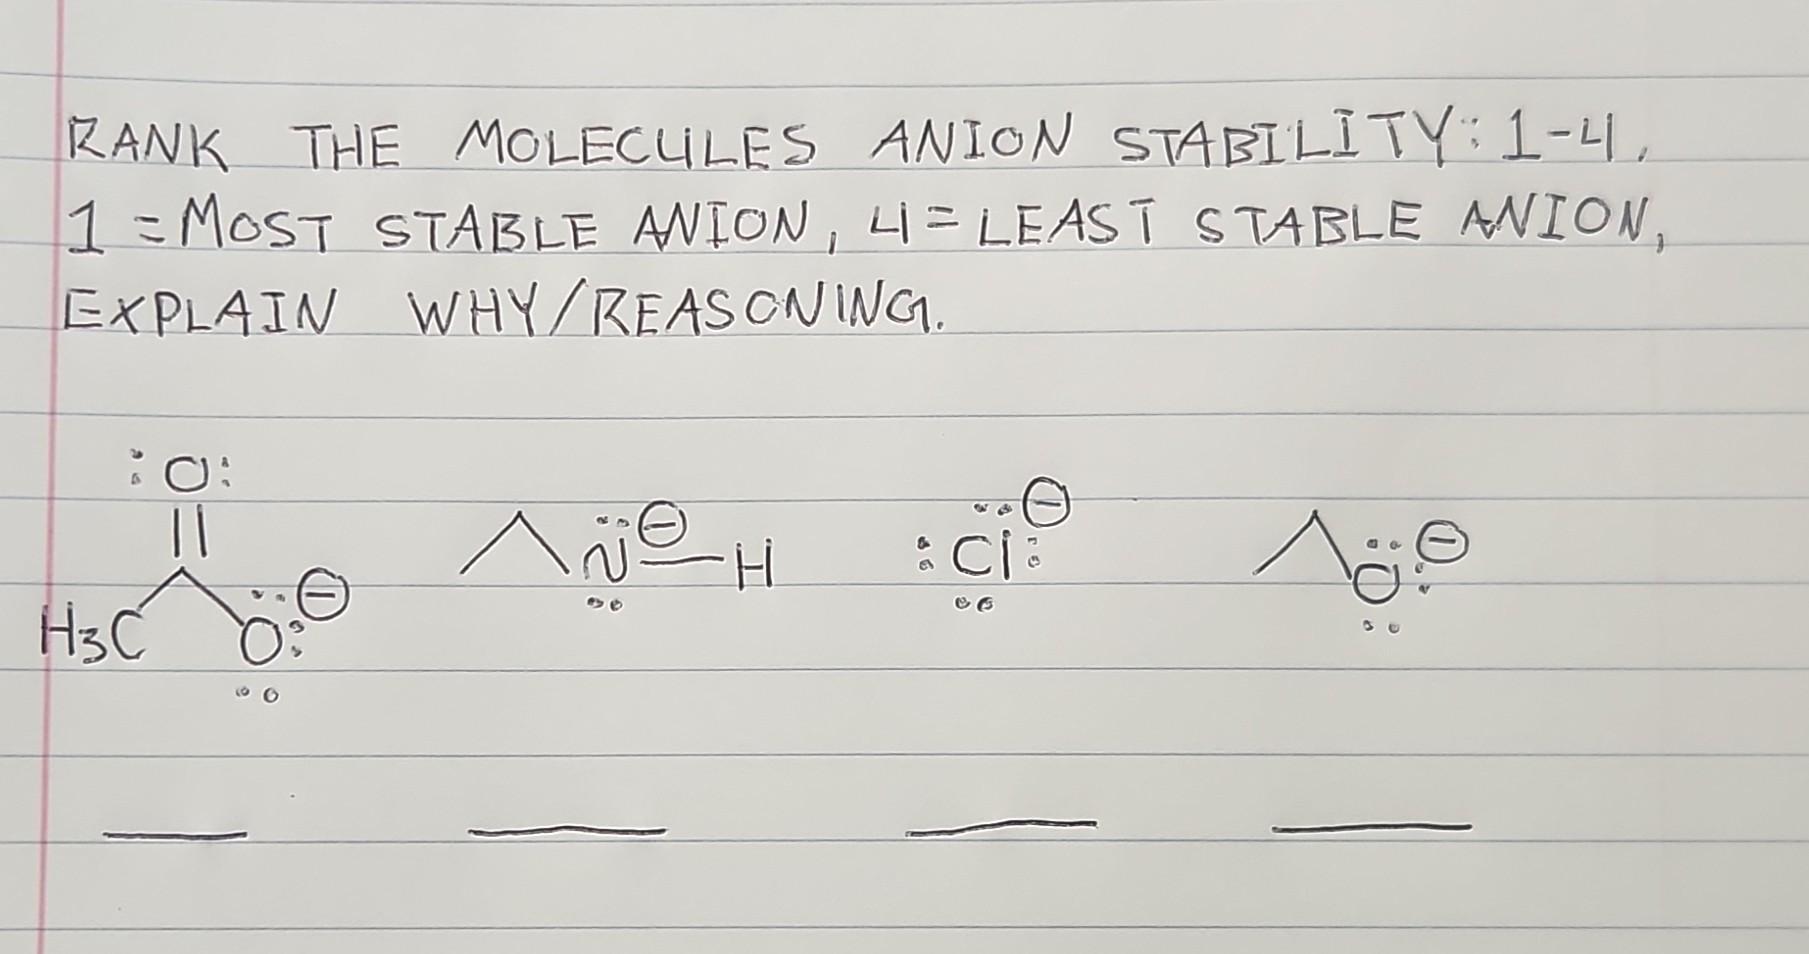 RANK THE MOLECULES ANION STABILITY: 1-4,
1 = MOST STABLE ANION, 4 = LEAST STABLE ANION,
EXPLAIN WHY/REASONING.
:O:
H3C O: ⊖
N ⊖ H
:Cl: ⊖
O: ⊖